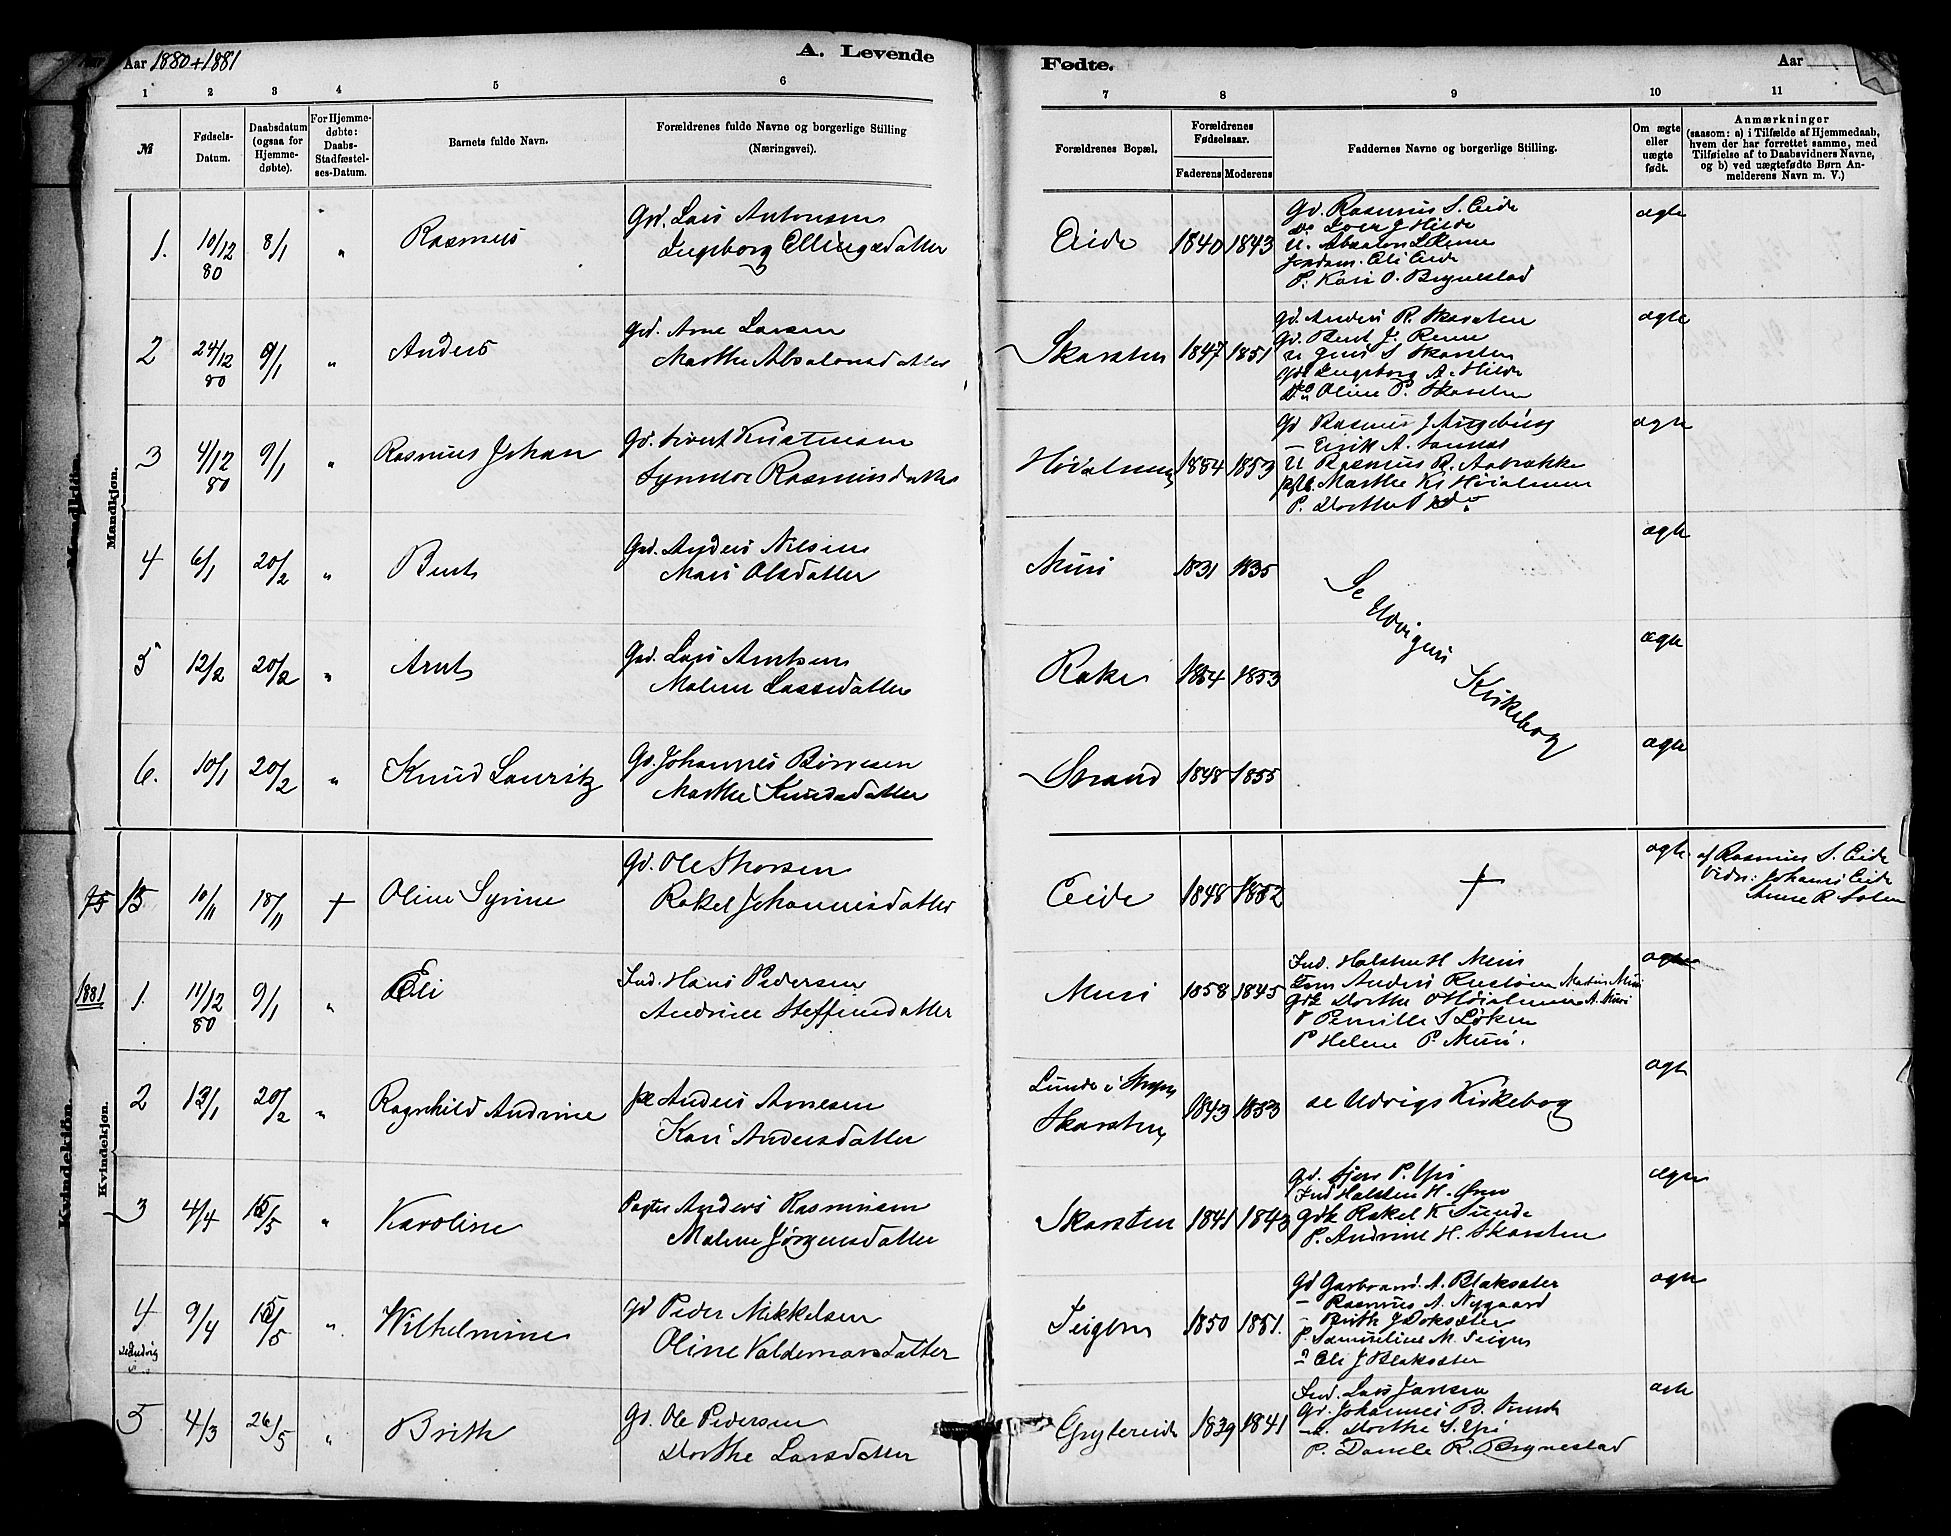 Aar 1880+1881
A. Levende
Fødte.
Aar
1 2 3 4 5 6 7 8 9 10 11
№
Fødsels-Datum.
Daabsdatum (ogsaa for Hjemme-døbte).
For Hjemme-døbte: Daabs-Stadfæstel-ses-Datum.
Barnets fulde Navn.
Forældrenes fulde Navne og borgerlige Stilling
(Næringsvei).
Forældrenes Bopæl.
Forældrenes Fødselsaar.
Faderens Moderens
Faddernes Navne og borgerlige Stilling.
Om ægte eller uægte født.
Anmærkninger
(saasom: a) i Tilfælde af Hjemmedaab,
hvem der har forrettet samme, med
Tilføielse af to Daabsvidners Navne,
og b) ved uægtefødte Børn An-
melderens Navn m. V.)
Mandkjøn.
1. 10/12 80 8/1 " Rasmus
Grd. Lars Antonsen
Ingeborg Ellingsdatter
Eide 1840 1843
Gd. Rasmus S. Eide
do Iver J Hilde
U. Absalon L Renne
Jordm. Eli Eide
P. Kari O. Brynestad
ægte
2 24/12 80 9/1 " Anders
Grd. Arne Larsen
Marthe Absalonsdatter
Skarsten 1847 1851
Gd. Anders R. Skarsten
Gd. Bent J. Renne
U Jens S Skarsten
Gdk Ingeborg A. Hilde
Do Oline P. Skarsten
ægte
3 4/12 80 9/1 " Rasmus Johan
Gd. Sivert
Synnøve Rasmusdatter
1884 1853
Gd Rasmus J
- Eirik A.
U Rasmus R. Aabrække
Marthe Kr
P. Dorthe P do.
ægte
4 6/1 20/2 " Bent
Grd. Anders Nilsen
Mari Olsdatter
Muri 1831 1835
ægte
5 12/2 20/2 " Arnt
Grd. Lars Arntsen
Malene Lassedatter
Rake 1854 1853
Se Udvigens Kirkebog
ægte
6. 10/1 20/2 " Knud Lauritz
Gd. Johannes Børresen
Marthe Knudsdatter
Strand 1848 1855
ægte
Kvindekjøn.
15 15 10/11 18/11 + Oline Syrine
Gd. Ole Thorsen
Rakel Johannesdatter
Eide 1848 1852
+
ægte
af Rasmus S. Eide
Vidn: Johannes Eide
Anne R.
1881
1. 11/12 80 9/1 " Eli
Ind. Hans Pedersen
Andrine Steffensdatter
Muri 1858 1845
Ind. Halsten H Muri
Anders Rustøen Martin Muri
Gdk Dorthe O A. Muri
P Pernille S Løken
P Helene P. Muri.
ægte
2 13/1 20/2 " Ragnhild Andrine
Anders Arnesen
Kari Andersdatter
Lunde i Stryn
Skarsten 1843 1853
se Udvigs Kirkebog
ægte
3 4/4 15/5 " Karoline
Pagter Anders Rasmusen
Malene Jørgensdatter
Skarsten 1841 1843
Gd. P. Yri
Ind Halsten H.
Gdk Rakel K Sunde
P. Andrine H. Skarsten
ægte
4 9/4 15/5 " Wilhelmine
Gd Peder Mikkelsen
Oline Valdemarsdatter
Teigen 1850 1851.
Gd Gerbrand. A. Blaksæter
- Rasmus A. Nygaard
- Brith J
P. Samueline M. Teigen
" Eli J Blaksæter
ægte
5 4/3 26/5 " Brith
Gd. Ole Pedersen
Dorthe Larsdatter
Grytereide 1839 1841
Ind. Lars Jansen
Gd. Johannes B.
Dorthe S. Yri
P. R. Brynestad
ægte